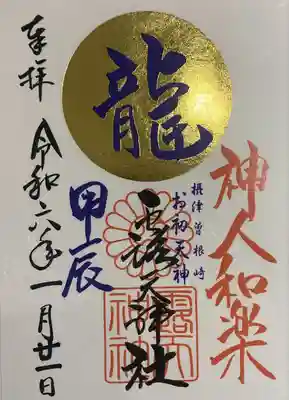 神人和楽
龍
摂津曽根崎
お初天神
露天神社
甲辰
奉拝
令和六年一月廿一日